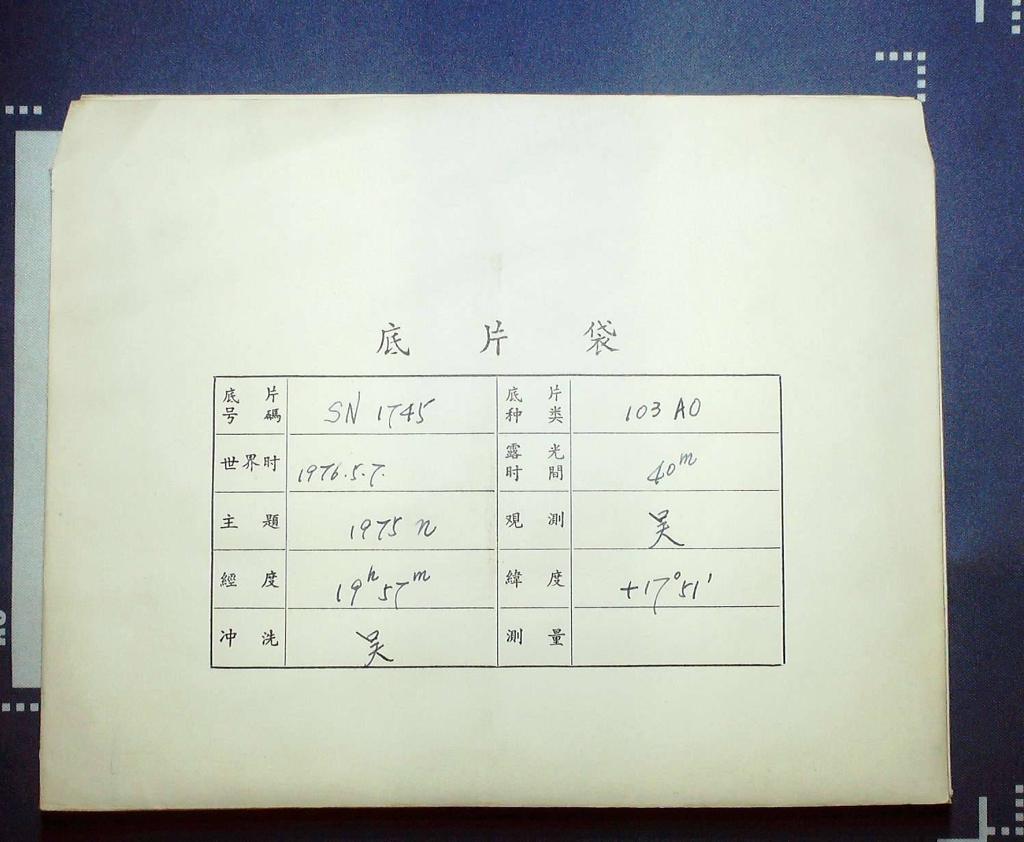 底片袋
底片号碼 SN 1745 底片种类 103 AO
世界时 1976.5.7. 露光时間 40m
主題 1975 n 观測 吴
經度 19h57m 緯度 +17°51'
冲洗 吴 測量